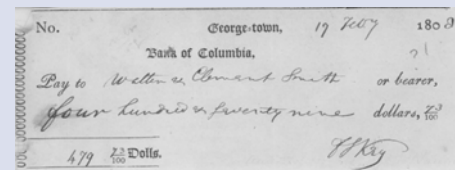 No. George-town, 19 Feby 180
Bank of Columbia,
Pay to Walter & Clement Smith or bearer,
four hundred & seventy nine dollars, 73/100
479 73/100 Dolls. F S Key